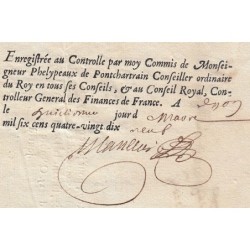 Enregistrée au Controlle par moy Commis de Monsei-
gneur Phelypeaux de Pontchartrain Conseiller ordinaire
du Roy en tous ses Conseils, & au Conseil Royal, Con-
trolleur General des Finances de France. A
le jour d
mil six cens quatre-vingt dix neuf